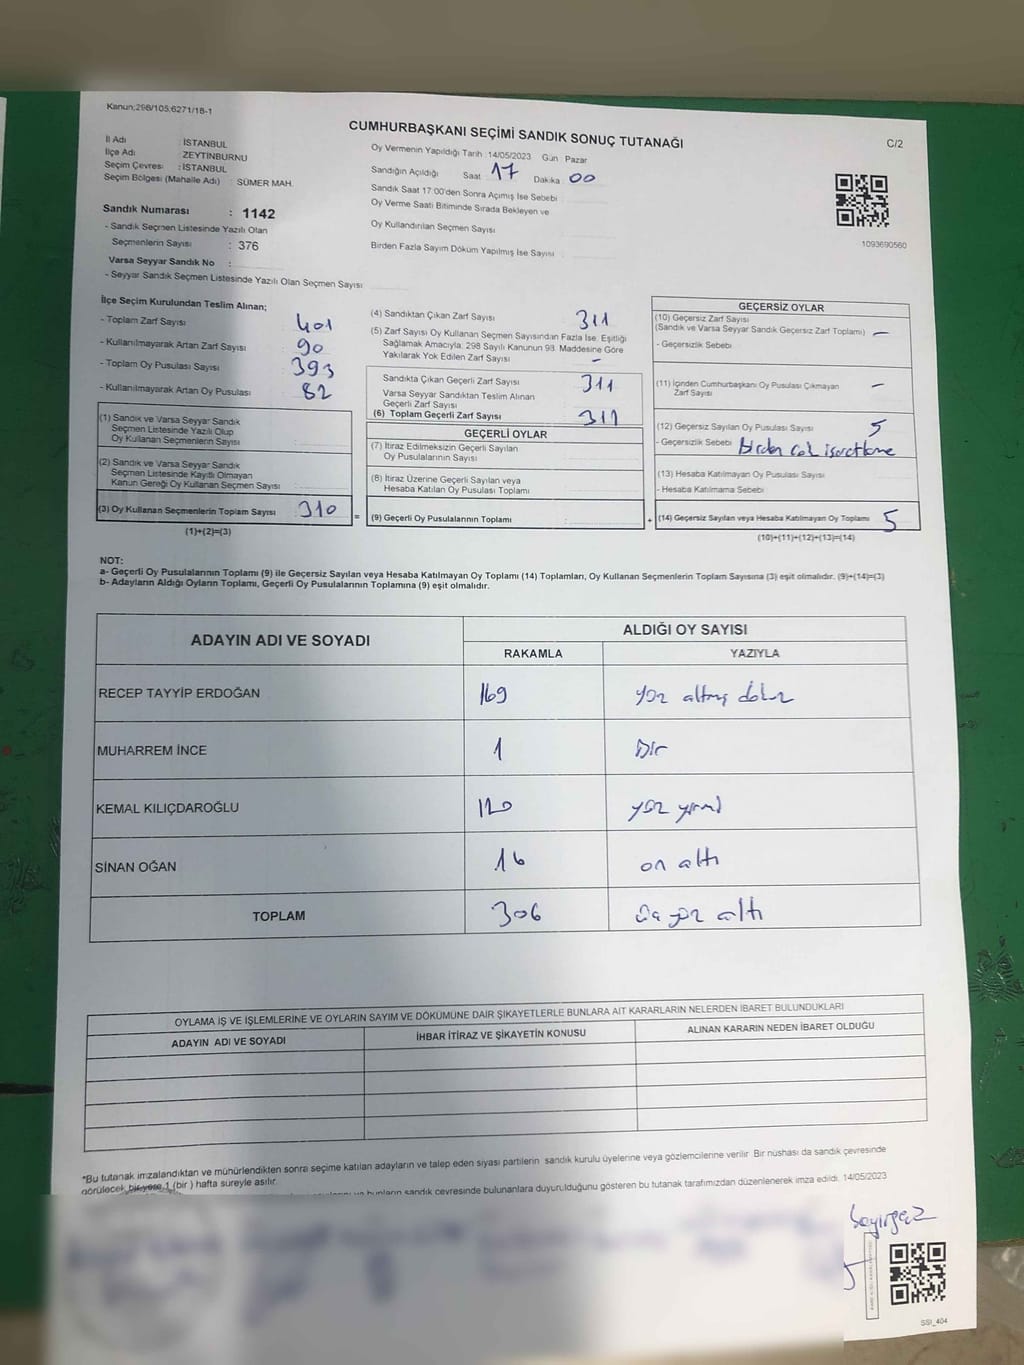 Kanun;298/105,6271/18-1
CUMHURBAŞKANI SEÇİMİ SANDIK SONUÇ TUTANAĞI
C/2
İl Adı : İSTANBUL
İlçe Adı : ZEYTİNBURNU
Seçim Çevresi : İSTANBUL
Seçim Bölgesi (Mahalle Adı) : SÜMER MAH.
Sandık Numarası : 1142
- Sandık Seçmen Listesinde Yazılı Olan
Seçmenlerin Sayısı : 376
Varsa Seyyar Sandık No :
- Seyyar Sandık Seçmen Listesinde Yazılı Olan Seçmen Sayısı
Oy Vermenin Yapıldığı Tarih :14/05/2023 Gün Pazar
Sandığın Açıldığı Saat 17 Dakika 00
Sandık Saat 17:00'den Sonra Açımış İse Sebebi
Oy Verme Saati Bitiminde Sırada Bekleyen ve
Oy Kullandırılan Seçmen Sayısı
Birden Fazla Sayım Döküm Yapılmış İse Sayısı :
1093690560
İlçe Seçim Kurulundan Teslim Alınan;
- Toplam Zarf Sayısı 401
- Kullanılmayarak Artan Zarf Sayısı 90
- Toplam Oy Pusulası Sayısı 393
- Kullanılmayarak Artan Oy Pusulası 82
(1) Sandık ve Varsa Seyyar Sandık
Seçmen Listesinde Yazılı Olup
Oy Kullanan Seçmenlerin Sayısı :
(2) Sandık ve Varsa Seyyar Sandık
Seçmen Listesinde Kayıtlı Olmayan
Kanun Gereği Oy Kullanan Seçmen Sayısı :
(3) Oy Kullanan Seçmenlerin Toplam Sayısı 310 =
(1)+(2)=(3)
(4) Sandıktan Çıkan Zarf Sayısı 311
(5) Zarf Sayısı Oy Kullanan Seçmen Sayısından Fazla İse, Eşitliği
Sağlamak Amacıyla, 298 Sayılı Kanunun 98. Maddesine Göre
Yakılarak Yok Edilen Zarf Sayısı -
Sandıkta Çıkan Geçerli Zarf Sayısı 311
Varsa Seyyar Sandıktan Teslim Alınan
Geçerli Zarf Sayısı
(6) Toplam Geçerli Zarf Sayısı 311
GEÇERLİ OYLAR
(7) İtiraz Edilmeksizin Geçerli Sayılan
Oy Pusulalarının Sayısı :
(8) İtiraz Üzerine Geçerli Sayılan veya
Hesaba Katılan Oy Pusulası Toplamı :
(9) Geçerli Oy Pusulalarının Toplamı : +
GEÇERSİZ OYLAR
(10) Geçersiz Zarf Sayısı
(Sandık ve Varsa Seyyar Sandık Geçersiz Zarf Toplamı) -
- Geçersizlik Sebebi
(11) İçinden Cumhurbaşkanı Oy Pusulası Çıkmayan -
Zarf Sayısı
(12) Geçersiz Sayılan Oy Pusulası Sayısı 5
- Geçersizlik Sebebi birden çok işaretleme
(13) Hesaba Katılmayan Oy Pusulası Sayısı
- Hesaba Katılmama Sebebi
(14) Geçersiz Sayılan veya Hesaba Katılmayan Oy Toplamı 5
(10)+(11)+(12)+(13)=(14)
NOT:
a- Geçerli Oy Pusulalarının Toplamı (9) ile Geçersiz Sayılan veya Hesaba Katılmayan Oy Toplamı (14) Toplamları, Oy Kullanan Seçmenlerin Toplam Sayısına (3) eşit olmalıdır. (9)+(14)=(3)
b- Adayların Aldığı Oyların Toplamı, Geçerli Oy Pusulalarının Toplamına (9) eşit olmalıdır.
ADAYIN ADI VE SOYADI
ALDIĞI OY SAYISI
RAKAMLA YAZIYLA
RECEP TAYYİP ERDOĞAN 169 yüz altmış dokuz
MUHARREM İNCE 1 bir
KEMAL KILIÇDAROĞLU 120 yüz yirmi
SİNAN OĞAN 16 on altı
TOPLAM 306 üç yüz altı
OYLAMA İŞ VE İŞLEMLERİNE VE OYLARIN SAYIM VE DÖKÜMÜNE DAİR ŞİKAYETLERLE BUNLARA AİT KARARLARIN NELERDEN İBARET BULUNDUKLARI
ADAYIN ADI VE SOYADI İHBAR İTİRAZ VE ŞİKAYETİN KONUSU ALINAN KARARIN NEDEN İBARET OLDUĞU
*Bu tutanak imzalandıktan ve mühürlendikten sonra seçime katılan adayların ve talep eden siyasi partilerin sandık kurulu üyelerine veya gözlemcilerine verilir. Bir nüshası da sandık çevresinde
görülecek bir yere 1 (bir ) hafta süreyle asılır.
ve bunların sandık çevresinde bulunanlara duyurulduğunu gösteren bu tutanak tarafımızdan düzenlenerek imza edildi. 14/05/2023
SSI_404